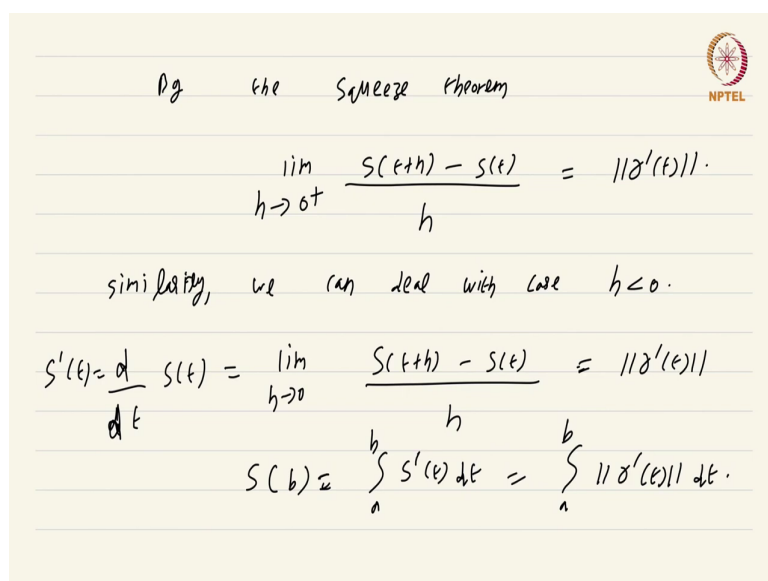 NPTEL
By the Squeeze theorem
lim h→0+ (S(t+h) − S(t)) / h = ||γ'(t)||.
similarly, we can deal with case h<0.
S'(t) = d/dt S(t) = lim h→0 (S(t+h) − S(t)) / h = ||γ'(t)||
S(b) = ∫_a^b S'(t) dt = ∫_a^b ||γ'(t)|| dt.